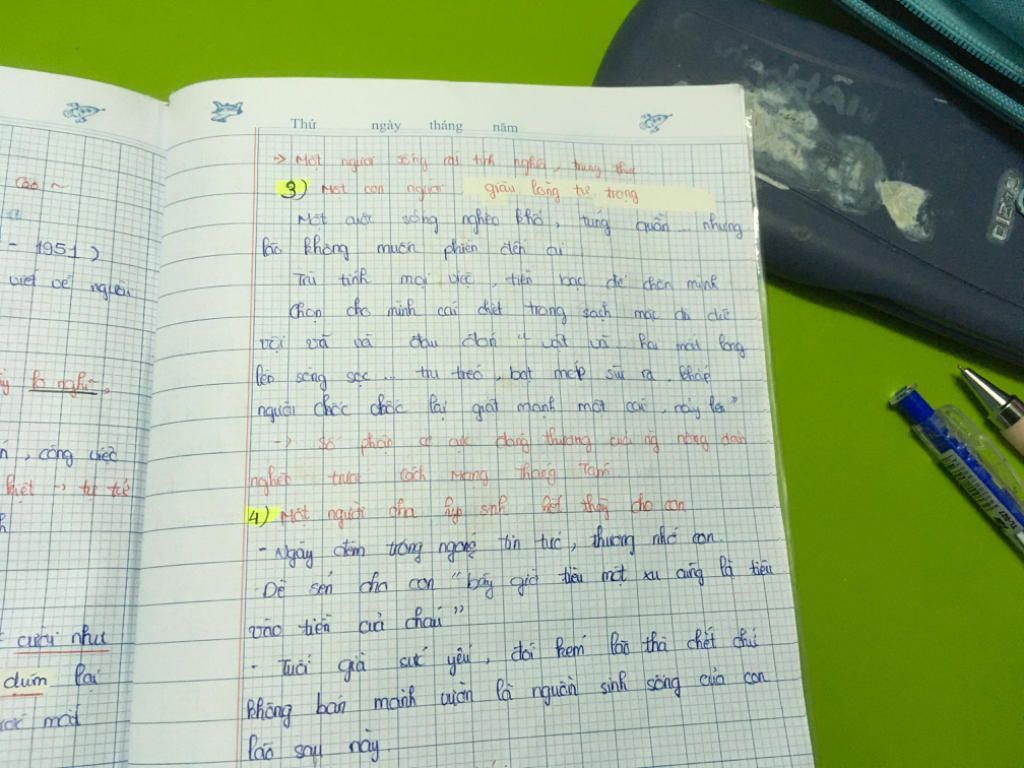 cao ~
- 1951)
viết về người
là nghĩ~,
, công việc
-> tự tử
cuối như
dúm lại
mới
Thứ ngày tháng năm
-> Một người sống rất tình nghĩa, trung thực
3) Một con người giàu lòng tự trọng
Một cuộc sống nghèo khổ, túng quẫn... nhưng
lão không muốn phiền đến ai
Trù tính mọi việc, tiền bạc để chôn mình
Chọn cho mình cái chết trong sạch mặc dù dữ
dội và đau đớn "vật vã hai mắt long
lên sòng sọc... tru tréo, bọt mép sùi ra, khắp
người chốc chốc lại giật mạnh một cái, nảy lên"
-> Số phận cơ cực đáng thương của ng nông dân
nghèo trước Cách Mạng Tháng Tám
4) Một người cha hy sinh hết thảy cho con
- Ngày đêm trông ngóng tin tức, thương nhớ con.
Dè sẻn cho con "bây giờ tiêu một xu cũng là tiêu
vào tiền của cháu"
- Tuổi già sức yếu, đói kém lão thà chết chứ
không bán mảnh vườn là nguồn sinh sống của con
lão sau này.
NHÂN